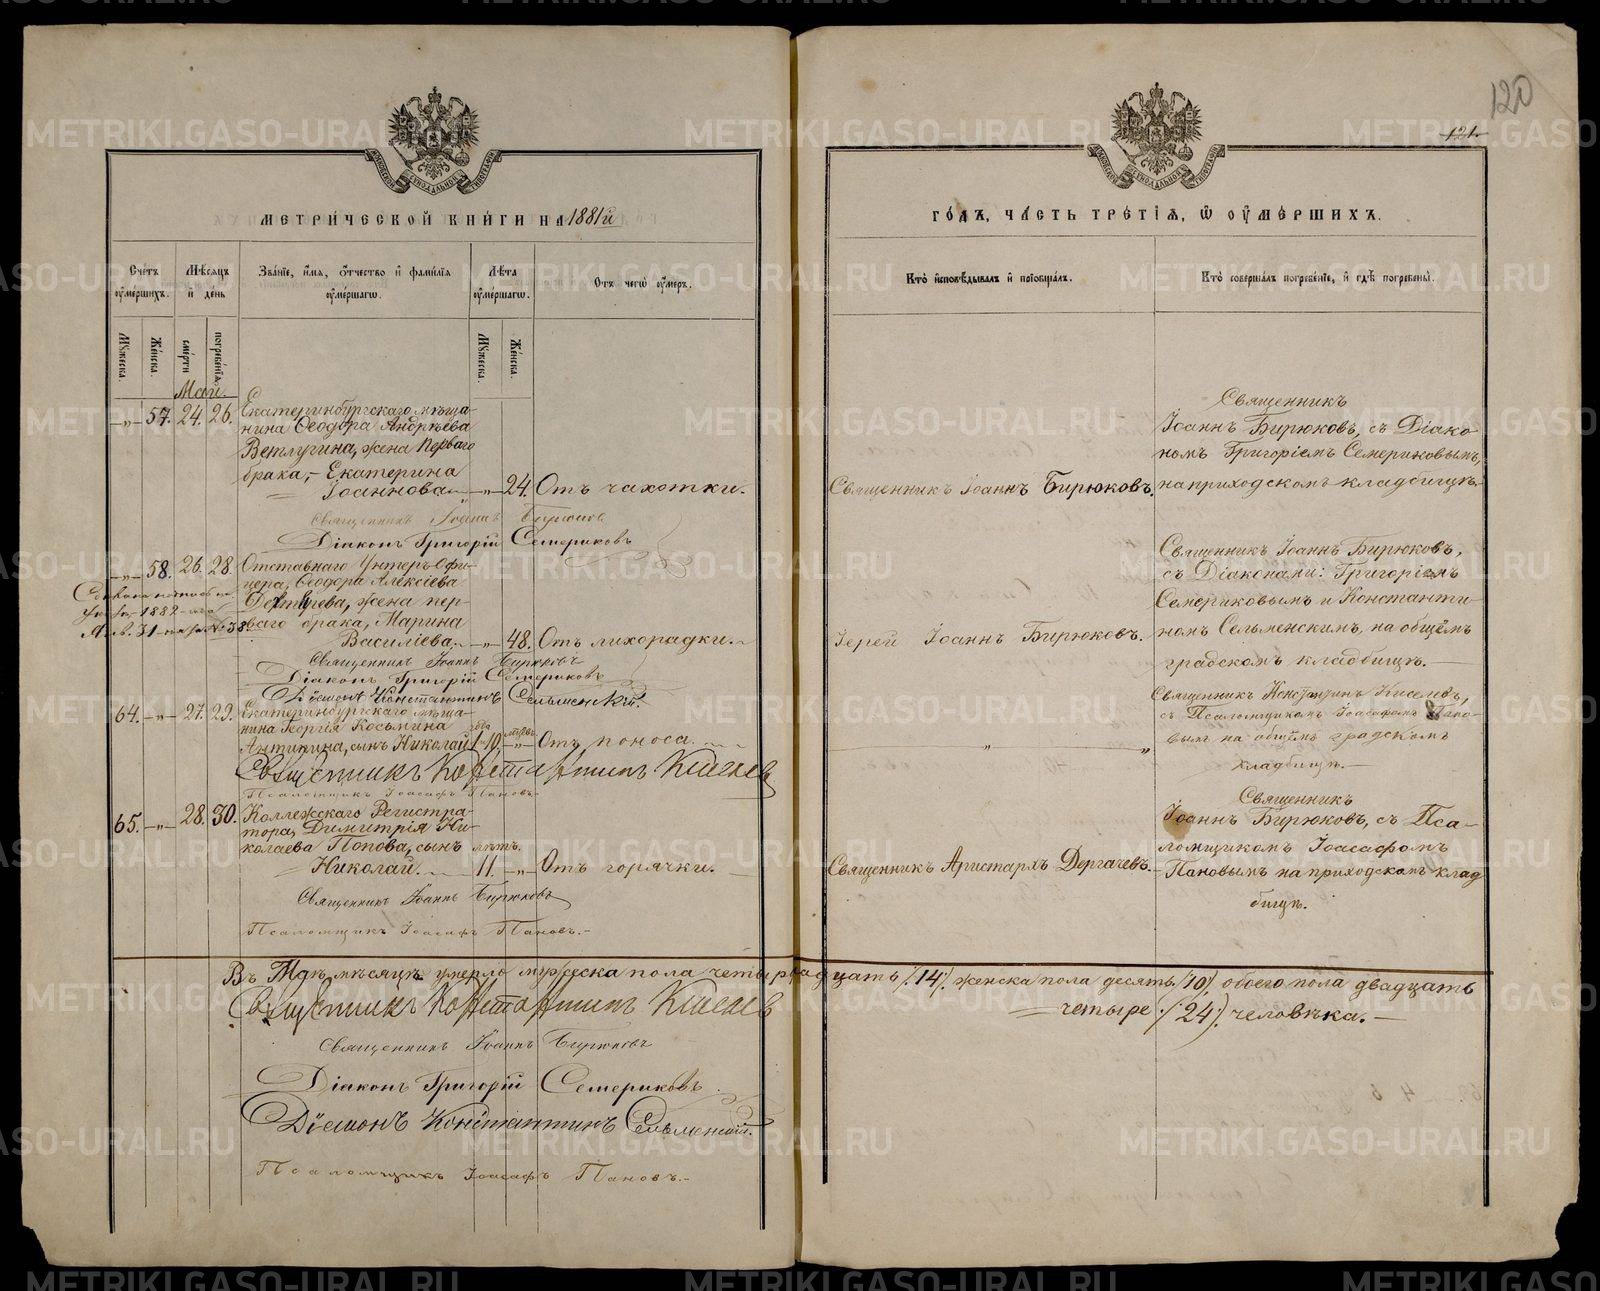 120
121.
МЕТРИЧЕСКОЙ КНИГИ НА 1881й
ГОДЪ, ЧАСТЬ ТРЕТІЯ, Ѿ ОУМЕРШИХЪ.
Счетъ оумершихъ.
Мѣсяцъ и день
Званіе, имя, отчество и фамилія оумершагѡ.
Лѣта оумершагѡ.
Отъ чегѡ оумеръ.
Кто исповѣдывалъ и пріобщалъ.
Кто совершалъ погребеніе, и гдѣ погребены.
Мужеска.
Женска.
смерти
погребенія.
Мужеска.
Женска.
Май.
-„- 57. 24. 26. Екатеринбургскаго мѣща-
нина Ѳеодора Андрѣева
Ветлугина, жена перваго
брака,- Екатерина
Іоаннова. -„- 24. Отъ чахотки.
Священникъ Іоаннъ Бирюковъ.
Священникъ
Іоаннъ Бирюковъ, съ Діако
номъ Григоріемъ Семериковымъ,
на приходскомъ кладбищѣ.
Священникъ Іоаннъ Бирюковъ
Діаконъ Григорій Семериковъ
-„- 58. 26. 28. Отставнаго Унтеръ-Офи-
цера, Ѳеодора Алексіева
жена пер-
ваго брака, Марина
Василіева. -„- 48. Отъ лихорадки.
1882
31 № 38
Іерей Іоаннъ Бирюковъ.
Священникъ Іоаннъ Бирюковъ,
съ Діаконами: Григоріемъ
Семериковымъ и Константи-
номъ Сельменскимъ, на общемъ
градскомъ кладбищѣ.
Священникъ Іоаннъ Бирюковъ
Діаконъ Григорій Семериковъ
Діаконъ Константинъ Сельменскій.
64. -„- 27. 29. Екатеринбургскаго мѣща-
нина Георгія Косьмина
Антипина, сынъ Николай -„- Отъ поноса.
„ „
Священникъ Константинъ Киселевъ,
съ Псаломщикомъ Іоасафомъ Пано-
вымъ на общемъ градскомъ
кладбищѣ.
Священникъ Константинъ Киселев
Псаломщикъ Іоасафъ Пановъ.
65. -„- 28. 30. Коллежскаго Регистра-
тора, Димитрія Ни-
колаева Попова, сынъ лѣтъ.
Николай. 11. -„- Отъ горячки.
Священникъ Аристархъ Дергачевъ.
Священникъ
Іоаннъ Бирюковъ, съ Пса-
ломщикомъ Іоасафомъ
Пановымъ на приходскомъ клад
бищѣ.
Священникъ Іоаннъ Бирюковъ
Псаломщикъ Іоасафъ Пановъ.
Въ Маѣ мѣсяцѣ умерло мужеска пола четырнадцать /14/. женска пола десять /10/. обоего пола двадцать
четыре /24/. человѣка.
Священникъ Константинъ Киселев
Священникъ Іоаннъ Бирюковъ
Діаконъ Григорій Семериковъ
Діаконъ Константинъ Сельменскій.
Псаломщикъ Іоасафъ Пановъ.
METRIKI.GASO-URAL.RU